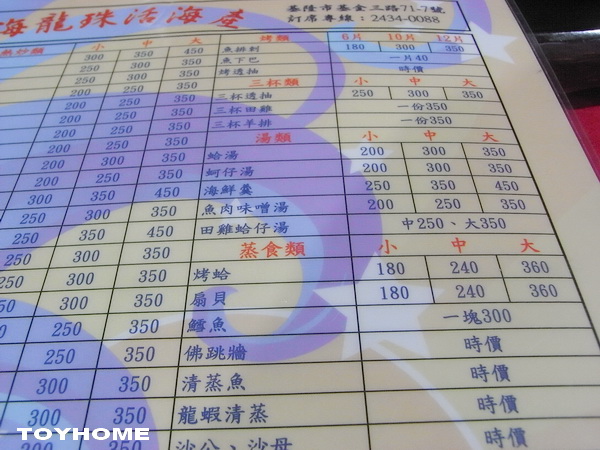 海龍珠活海產
基隆市基金三路71-7號
訂席專線：2434-0088
熱炒類 小 中 大 烤類 6片 10片 12片
300 350 450 魚排刺 180 300 350
250 300 350 魚下巴 一片40
250 300 350 烤透抽 時價
200 250 350 三杯類 小 中 大
200 250 350 三杯透抽 250 300 350
200 250 350 三杯田雞 一份350
200 250 350 三杯羊排 一份350
200 250 350 湯類 小 中 大
200 300 350 蛤湯 200 300 350
200 300 350 蚵仔湯 200 300 350
250 350 450 海鮮羹 250 350 450
250 300 350 魚肉味噌湯 200 250 350
250 350 450 田雞蛤仔湯 中250、大350
250 300 350 蒸食類 小 中 大
250 300 350 烤蛤 180 240 360
250 300 350 扇貝 180 240 360
250 350 鱈魚 一塊300
250 350 佛跳牆 時價
300 350 清蒸魚 時價
300 350 龍蝦清蒸 時價
350 沙公、沙母 時價
TOYHOME